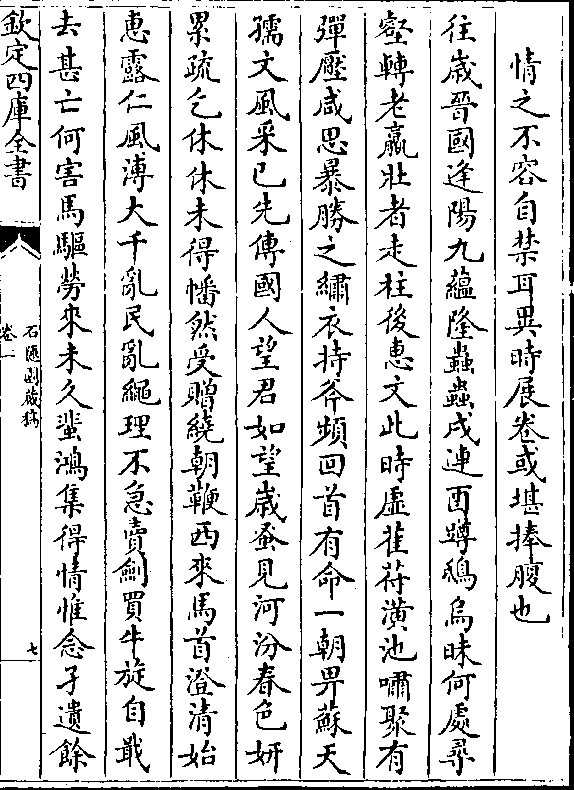 情之不容自禁耳異時展卷或堪捧腹也
往歳晉國逢陽九蘊隆蟲蟲戌連酉蹲鴟烏昧何處尋
壑轉老羸壯者走柱後惠文此時虛萑苻潢池嘯聚有
彈壓咸思暴勝之繡衣持斧頻回首有命一朝畀蘇天
孺文風采已先傳國人望君如望歳蚤見河汾春色妍
累疏乞休休未得幡然受贈繞朝鞭西來馬首澄清始
恵露仁風溥大千亂民亂繩理不急賣劍買牛旋自戢
去甚亡何害馬驅勞來未久蜚鴻集得情惟念孑遺餘
欽定四庫全書
石匱剧蔵稿
卷一
七